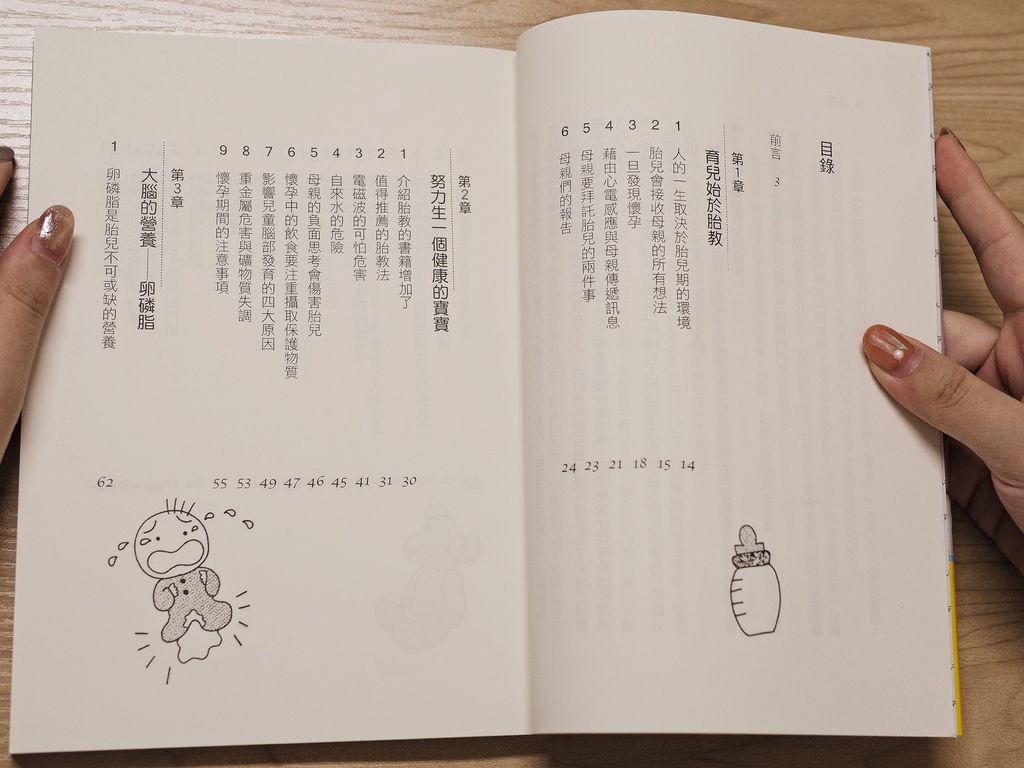 目錄
前言 3
第1章
育兒始於胎教
1 人的一生取決於胎兒期的環境 14
2 胎兒會接收母親的所有想法 15
3 一旦發現懷孕 18
4 藉由心電感應與母親傳遞訊息 21
5 母親要拜託胎兒的兩件事 23
6 母親們的報告 24
第2章
努力生一個健康的寶寶
1 介紹胎教的書籍增加了 30
2 值得推薦的胎教法 31
3 電磁波的可怕危害 41
4 自來水的危險 45
5 母親的負面思考會傷害胎兒 46
6 懷孕中的飲食要注重攝取保護物質 47
7 影響兒童腦部發育的四大原因 49
8 重金屬危害與礦物質失調 53
9 懷孕期間的注意事項 55
第3章
大腦的營養──卵磷脂
1 卵磷脂是胎兒不可或缺的營養 62